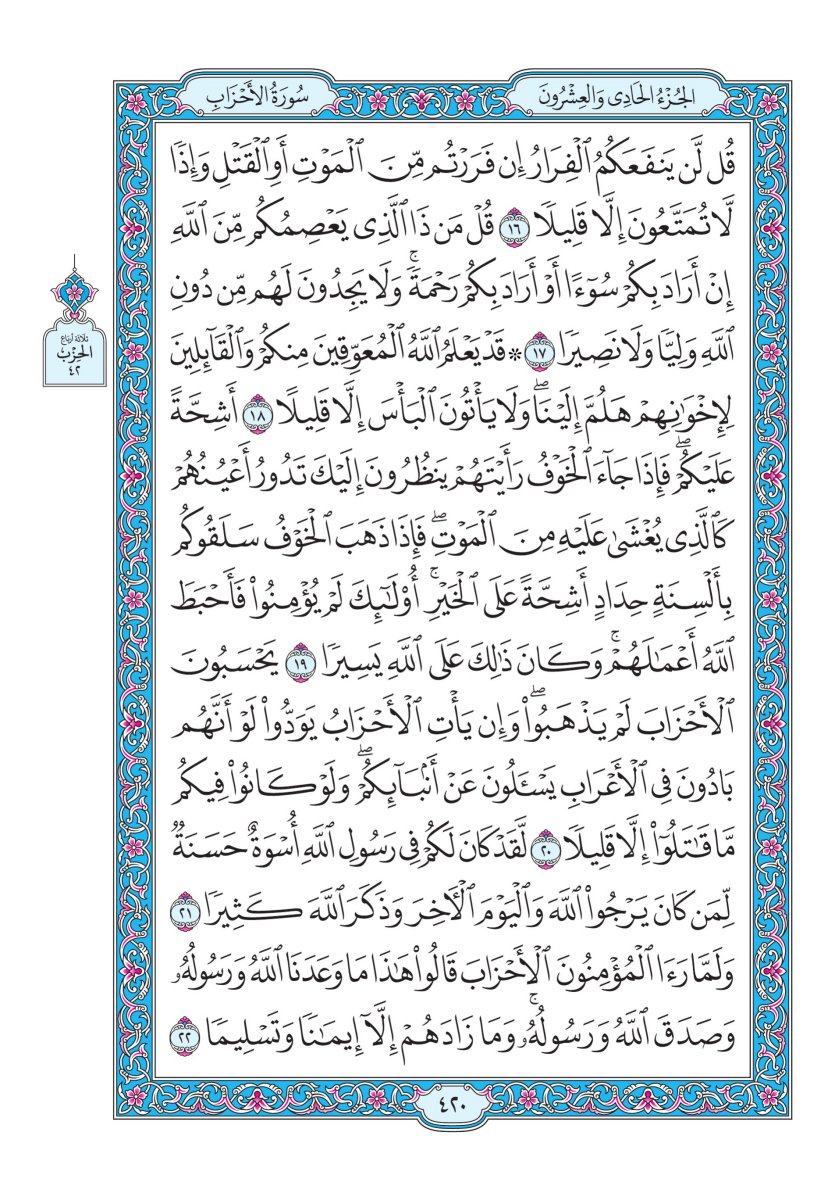 الجُزْءُ الحَادِي وَالعِشْرُونَ
سُورَةُ الأَحْزَابِ
قُل لَّن يَنفَعَكُمُ ٱلْفِرَارُ إِن فَرَرْتُم مِّنَ ٱلْمَوْتِ أَوِ ٱلْقَتْلِ وَإِذًا
لَّا تُمَتَّعُونَ إِلَّا قَلِيلًا ١٦ قُلْ مَن ذَا ٱلَّذِى يَعْصِمُكُم مِّنَ ٱللَّهِ
إِنْ أَرَادَ بِكُمْ سُوٓءًا أَوْ أَرَادَ بِكُمْ رَحْمَةً ۚ وَلَا يَجِدُونَ لَهُم مِّن دُونِ
ٱللَّهِ وَلِيًّا وَلَا نَصِيرًا ١٧ * قَدْ يَعْلَمُ ٱللَّهُ ٱلْمُعَوِّقِينَ مِنكُمْ وَٱلْقَآئِلِينَ
لِإِخْوَٰنِهِمْ هَلُمَّ إِلَيْنَا ۖ وَلَا يَأْتُونَ ٱلْبَأْسَ إِلَّا قَلِيلًا ١٨ أَشِحَّةً
عَلَيْكُمْ ۖ فَإِذَا جَآءَ ٱلْخَوْفُ رَأَيْتَهُمْ يَنظُرُونَ إِلَيْكَ تَدُورُ أَعْيُنُهُمْ
كَٱلَّذِى يُغْشَىٰ عَلَيْهِ مِنَ ٱلْمَوْتِ ۖ فَإِذَا ذَهَبَ ٱلْخَوْفُ سَلَقُوكُم
بِأَلْسِنَةٍ حِدَادٍ أَشِحَّةً عَلَى ٱلْخَيْرِ ۚ أُو۟لَٰٓئِكَ لَمْ يُؤْمِنُوا۟ فَأَحْبَطَ
ٱللَّهُ أَعْمَٰلَهُمْ ۚ وَكَانَ ذَٰلِكَ عَلَى ٱللَّهِ يَسِيرًا ١٩ يَحْسَبُونَ
ٱلْأَحْزَابَ لَمْ يَذْهَبُوا۟ ۖ وَإِن يَأْتِ ٱلْأَحْزَابُ يَوَدُّوا۟ لَوْ أَنَّهُم
بَادُونَ فِى ٱلْأَعْرَابِ يَسْـَٔلُونَ عَنْ أَنۢبَآئِكُمْ ۖ وَلَوْ كَانُوا۟ فِيكُم
مَّا قَٰتَلُوٓا۟ إِلَّا قَلِيلًا ٢٠ لَّقَدْ كَانَ لَكُمْ فِى رَسُولِ ٱللَّهِ أُسْوَةٌ حَسَنَةٌ
لِّمَن كَانَ يَرْجُوا۟ ٱللَّهَ وَٱلْيَوْمَ ٱلْـَٔاخِرَ وَذَكَرَ ٱللَّهَ كَثِيرًا ٢١
وَلَمَّا رَءَا ٱلْمُؤْمِنُونَ ٱلْأَحْزَابَ قَالُوا۟ هَٰذَا مَا وَعَدَنَا ٱللَّهُ وَرَسُولُهُۥ
وَصَدَقَ ٱللَّهُ وَرَسُولُهُۥ ۚ وَمَا زَادَهُمْ إِلَّآ إِيمَٰنًا وَتَسْلِيمًا ٢٢
ثلاثة أرباع
الحِزْب
٤٢
٤٢٠